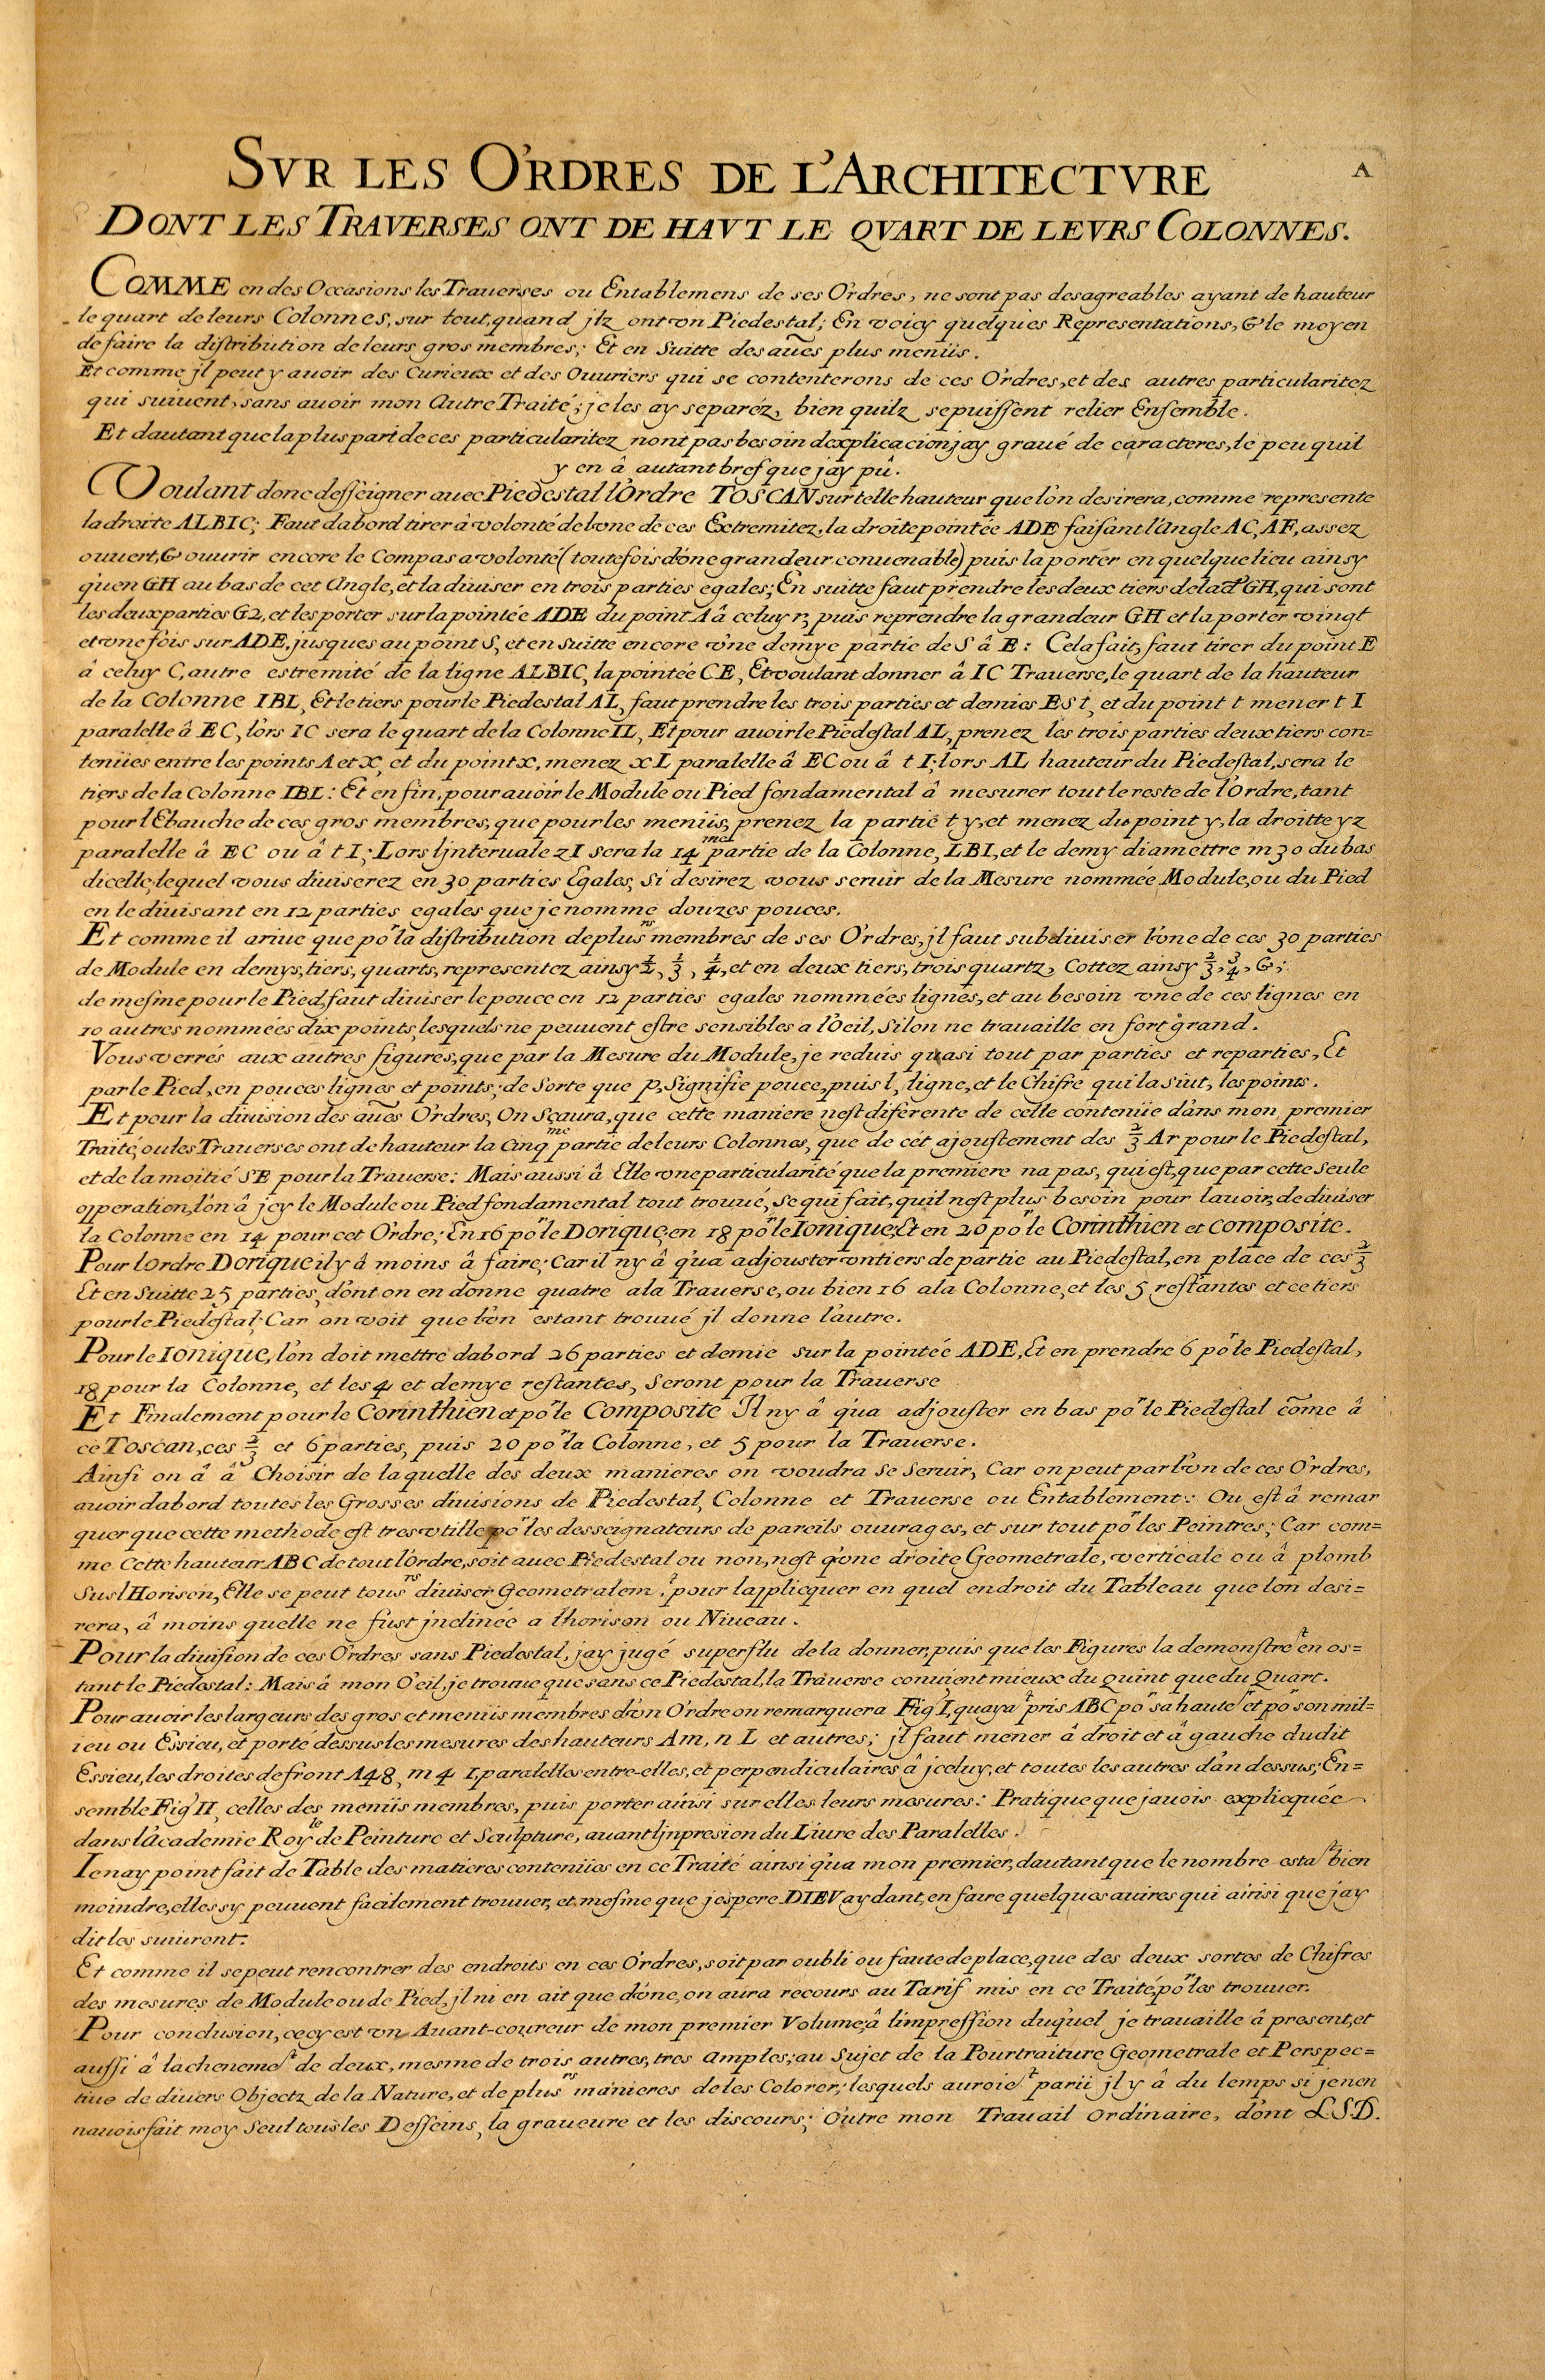 SVR LES ORDRES DE L'ARCHITECTVRE
A
DONT LES TRAVERSES ONT DE HAVT LE QVART DE LEVRS COLONNES.
COMME en des Occasions les Trauerses ou Entablemens de ses Ordres, ne sont pas desagreables ayant de hauteur
le quart de leurs Colonnes, sur tout, quand jlz ont vn Piedestal; En voicy quelques Representations, & le moyen
de faire la distribution de leurs gros membres; Et en Suitte des aũes plus menüs.
Et comme jl peut y auoir des Curieux et des Ouuriers qui se contenterons de ces Ordres, et des autres particularitez
qui suiuent, sans auoir mon Autre Traité; je les ay separéz, bien quilz se puissent relier Ensemble.
Et dautant que la plus part de ces particularitez nont pas besoin dexplicacion jay graué de caracteres, le peu quil
y en â autant bref que jay pû.
Voulant donc desseigner auec Piedestal l'Ordre TOSCAN sur telle hauteur que lon desirera, comme represente
la droite ALBIC; Faut dabord tirer â volonté de lvne de ces Extremitez, la droite pointée ADE faisant l'Angle AC, AF, assez
ouuert, & ouurir encore le Compas a volonté (toutefois dvne grandeur conuenable) puis la porter en quelque lieu ainsy
qu'en GH au bas de cet Angle, et la diuiser en trois parties egales; En suitte faut prendre les deux tiers de lad.e GH, qui sont
les deux parties G2, et les porter sur la pointée ADE du point A â celuy r; puis reprendre la grandeur GH et la porter vingt
et vne fois sur ADE, jusques au point S, et en suitte encore vne demye partie de S â E: Cela fait, faut tirer du point E
â celuy C, autre estremité de la ligne ALBIC, la pointée CE, Et voulant donner â IC Trauerse, le quart de la hauteur
de la Colonne IBL, Et le tiers pour le Piedestal AL, faut prendre les trois parties et demies ESt, et du point t mener tI
paralelle â EC, lors IC sera le quart de la Colonne IL, Et pour auoir le Piedestal AL, prenez les trois parties deux tiers con=
tenües entre les points A et X, et du point x, menez xL paralelle â EC ou â tI; lors AL hauteur du Piedestal, sera le
tiers de la Colonne IBL: Et en fin, pour auoir le Module ou Pied fondamental â mesurer tout le reste de l'Ordre, tant
pour l'Ebauche de ces gros membres, que pour les menüs, prenez la partie ty, et menez du point y, la droitte yz
paralelle â EC ou â tI; Lors ljnteruale zI sera la 14me partie de la Colonne, LBI, et le demy diamettre m30 du bas
dicelle, lequel vous diuiserez en 30 parties Egales, Si desirez vous seruir de la Mesure nommée Module, ou du Pied
en le diuisant en 12 parties egales que je nomme douzes pouces.
Et comme il ariue que por la distribution de plusrs membres de ses Ordres, jl faut subdiuiser lvne de ces 30 parties
de Module en demys, tiers, quarts, representez ainsy ½, ⅓, ¼, et en deux tiers, trois quartz, Cottez ainsy ⅔, ¾, &;
de mesme pour le Pied, faut diuiser le pouce en 12 parties egales nommées lignes, et au besoin vne de ces lignes en
10 autres nommées dix points, lesquels ne peuuent estre sensibles a l'Oeil, Silon ne trauaille en fort grand.
Vous verrés aux autres figures, que par la Mesure du Module, je reduis quasi tout par parties et reparties, Et
par le Pied, en pouces lignes et points; de Sorte que p, Signifie pouce, puis l, ligne, et le Chifre qui la siut, les points.
Et pour la diuision des aũes Ordres, On Sçaura, que cette maniere nest diferente de celle contenüe dans mon premier
Traité, ou les Trauerses ont de hauteur la Cinqme partie de leurs Colonnes, que de cét ajoustement des ⅔ Ar pour le Piedestal,
et de la moitié SE pour la Trauerse: Mais aussi â Elle vne particularité que la premiere na pas, qui est, que par cette Seule
opperation, lon â jcy le Module ou Pied fondamental tout trouué, se qui fait, quil nest plus besoin pour lauoir, de diuiser
la Colonne en 14 pour cet Ordre; En 16 por le Dorique, en 18 por le Ionique; Et en 20 por le Corinthien et composite.
Pour l'Ordre Dorique il y â moins â faire; Car il ny â qu'a adjouster vn tiers de partie au Piedestal, en place de ces ⅔
Et en Suitte 25 parties, dont on en donne quatre a la Trauerse, ou bien 16 a la Colonne, et les 5 restantes et ce tiers
pour le Piedestal; Car on voit que lvn estant trouué jl donne l'autre.
Pour le Ionique, lon doit mettre dabord 26 parties et demie sur la pointée ADE, Et en prendre 6 por le Piedestal,
18 pour la Colonne, et les 4 et demye restantes, Seront pour la Trauerse
Et Finalement pour le Corinthien et por le Composite Il ny â qu'a adjouster en bas por le Piedestal cõme â
ce Toscan, ces ⅔ et 6 parties, puis 20 por la Colonne, et 5 pour la Trauerse.
Ainsi on â â Choisir de laquelle des deux manieres on voudra se Seruir, Car on peut par lvn de ces Ordres,
auoir dabord toutes les Grosses diuisions de Piedestal, Colonne et Trauerse ou Entablement: Ou est â remar
quer que cette methode est tres vtille por les desseignateurs de pareils ouurages, et sur tout por les Peintres; Car com=
me Cette hauteur ABC de tout l'Ordre, soit auec Piedestal ou non, nest qvne droite Geometrale, verticale ou â plomb
Sus l'Horison, Elle se peut tousrs diuiser Geometralemt. pour lapplicquer en quel endroit du Tableau que lon desi=
rera, â moins quelle ne fust jnclinée a lhorison ou Niueau.
Pour la diuision de ces Ordres sans Piedestal, jay jugé superflu de la donner, puis que les Figures la demonstret en os=
tant le Piedestal: Mais â mon O'eil, je trouue que sans ce Piedestal, la Trauerse conuient mieux du quint que du Quart.
Pour auoir les largeurs des gros et menüs membres d'vn Ordre on remarquera Fig I, quayat pris ABC por sa hauteur et por son mil=
ieu ou Essieu, et porté dessus les mesures des hauteurs Am, nL et autres; jl faut mener â droit et â gauche dudit
Essieu, les droites de front A48, m4 I, paralelles entre-elles, et perpendiculaires â jceluy, et toutes les autres d'an dessus; En=
semble Fig II, celles des menüs membres, puis porter ainsi sur elles leurs mesures: Pratique que jauois explicquée
dans l'academie Royle de Peinture et Sculpture, auant ljnpresion du Liure des Paralelles.
Ie nay point fait de Table des matieres contenües en ce Traité ainsi qu'a mon premier, dautant que le nombre estat bien
moindre, elles sy peuuent facilement trouuer, et mesme que jespere DIEV aydant, en faire quelques autres qui ainsi que jay
dit les suiuront.
Et comme il se peut rencontrer des endroits en ces Ordres, soit par oubli ou faute de place, que des deux sortes de Chifres
des mesures de Module ou de Pied, jl ni en ait que d'vne, on aura recours au Tarif mis en ce Traité, por les trouuer.
Pour conclusion, cecy est vn Auant-coureur de mon premier Volume, â limpression duquel je trauaille â present, et
aussi â lachenemet de deux, mesme de trois autres, tres amples; au Sujet de la Pourtraiture Geometrale et Perspec=
tiue de diuers Objectz de la Nature, et de plusrs manieres de les Colorer; lesquels auroiet parü jl y â du temps si je nen
nauois fait moy Seul tous les Desseins, la graueure et les discours; Outre mon Trauail Ordinaire, dont LSD.